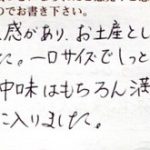 のでお書き下さい。
感があり、お土産とし
た。一口サイズでしっと
中味はもちろん満
に入りました。